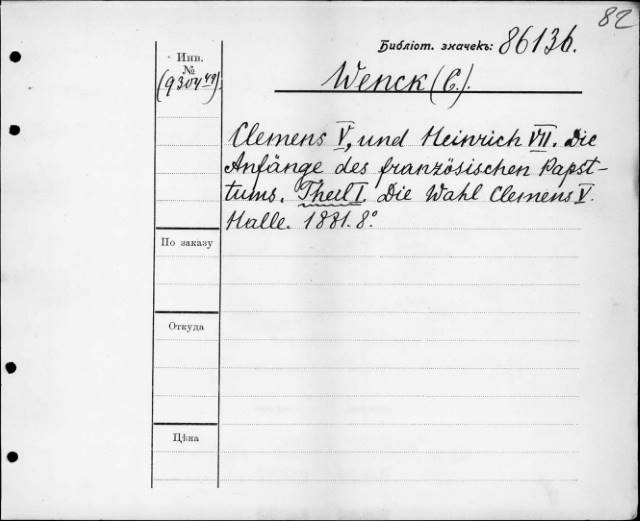 82
Библіот. значекъ: 86136.
Инв.
№
(9304 49).
Wenck (C.).
Clemens V, und Heinrich VII. Die
Anfänge des französischen Papst-
tums. Theil I. Die Wahl Clemens V.
Halle. 1881. 8º
По заказу
Откуда
Цѣна